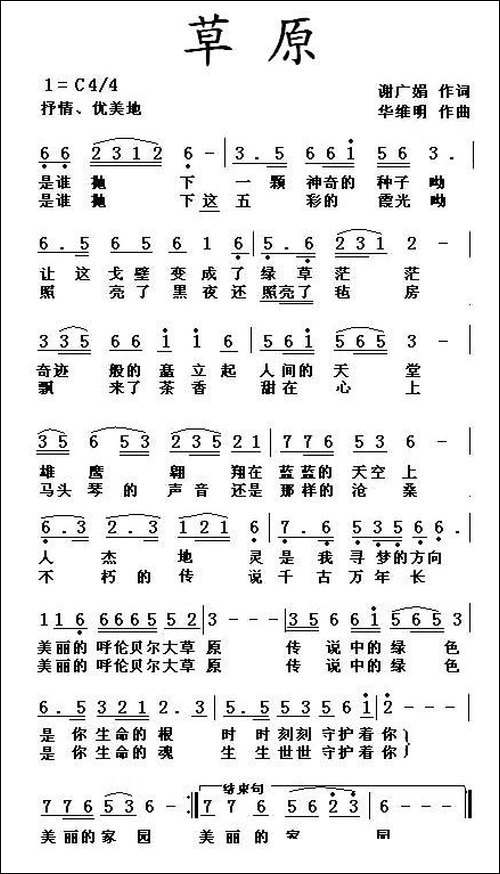 草原
1=C4/4
谢广娟 作词
抒情、优美地
华维明 作曲
6 6 2312 6 - | 3.5 661 56 3. |
是谁 抛 下 一颗 神奇的 种子 呦
是谁 抛 下这 五 彩的 霞光 呦
6.5 65 61 6 | 5.6 231 2 - |
让这 戈壁 变成了 绿草 茫 茫
照 亮了 黑夜还 照亮了 毡 房
335 66 1 1 6 | 561 565 3 - |
奇迹 般的 矗立起 人间的 天 堂
飘 来了 茶香 甜在 心 上
35 6 53 235 21 | 776 53 6 - |
雄 鹰 翱 翔在 蓝蓝的 天空 上
马头 琴的 声音 还是 那样的 沧 桑
6.3 2.3 121 6 | 7.6 5356 6. |
人 杰 地 灵 是 我 寻梦的方向
不 朽的 传 说 千古 万年 长
116 6665 52 3 - - - 35 661 565 3 |
美丽的 呼伦贝尔大草 原 传 说中的 绿 色
美丽的 呼伦贝尔大草 原 传 说中的 绿 色
6.5 321 2.3 | 5.5 53 56 1 | 2 - - - |
是你 生命的 根 时 时刻刻 守护着 你
是你 生命的 魂 生 生世世 守护着 你
结束句
776 53 6 - :| 776 5623 | 6 - - - |
美丽的 家 园 美丽 的 家 园